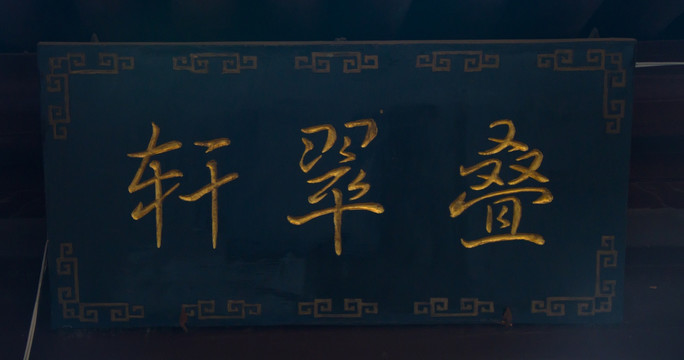 叠翠轩